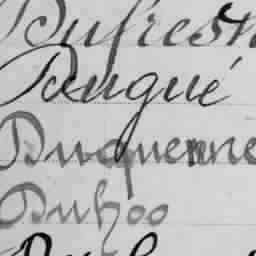 Dufresn
Dugué
Duquenne
Duhoo